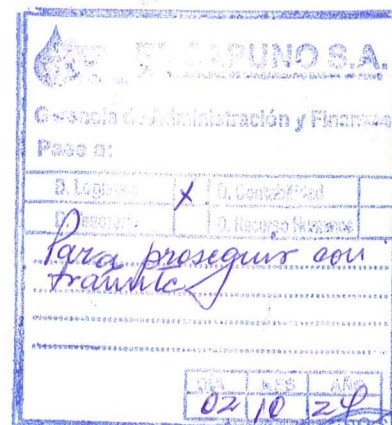 S.A.
Gerencia de Administración y Finanzas
Pase a:
D. Logística X D. Contabilidad
D. Recurso Humanos
Para proseguir con
tramite
DIA MES AÑO
02 10 24